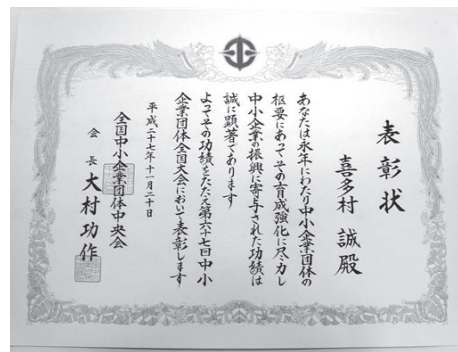 表彰状
喜多村 誠 殿
あなたは永年にわたり中小企業団体の
枢要にあってその育成強化に尽力し
中小企業の振興に寄与された功績は
誠に顕著であります
よってその功績をたたえ第六十七回中小
企業団体全国大会において表彰します
平成二十七年十一月二十日
全国中小企業団体中央会
会長 大村功作